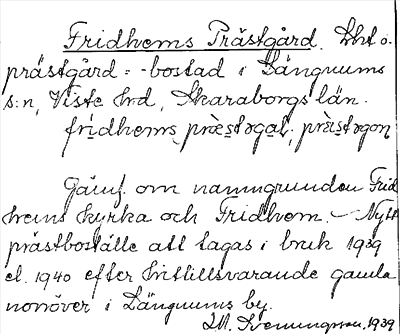 Fridhems Prästgård. Lht o.
prästgård = -bostad i Långnums
s:n, Viste hrd, Skaraborgs län.
fridhems præstɔgaḷ, præstɔgɔn
Jämf. om namngrunden Frid
hems kyrka och Fridhem. – Nytt
prästboställe att tagas i bruk 1939
el. 1940 efter hittillsvarande gamla
norröver i Långnums by.
Svenungsson, 1939